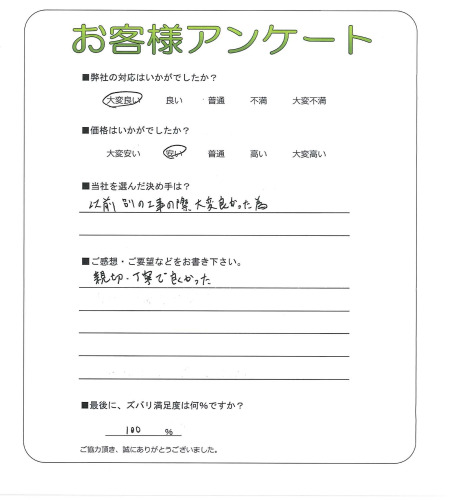 お客様アンケート
■弊社の対応はいかがでしたか？
大変良い 良い 普通 不満 大変不満
■価格はいかがでしたか？
大変安い 安い 普通 高い 大変高い
■当社を選んだ決め手は？
以前 別の工事の際、大変良かった為
■ご感想・ご要望などをお書き下さい。
親切・丁寧で良かった
■最後に、ズバリ満足度は何％ですか？
100 ％
ご協力頂き、誠にありがとうございました。